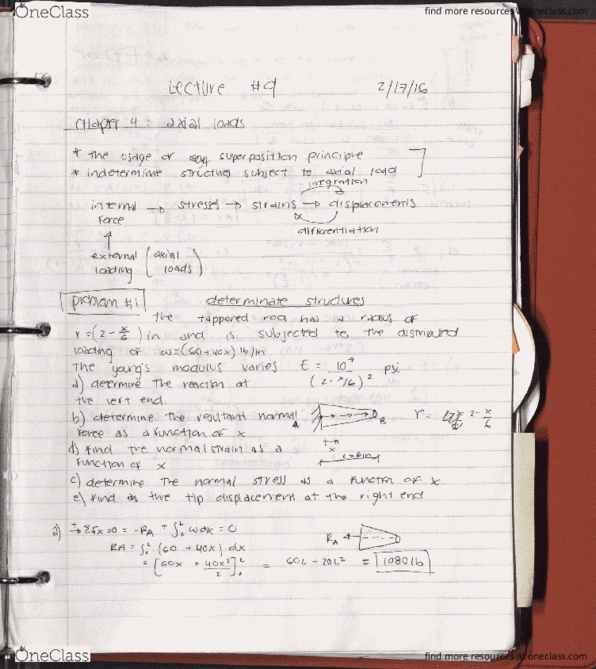 OneClass
find more resources at oneclass.com
Lecture #9
2/17/16
Chapter 4: axial loads
* the usage of superposition principle
* indetermine structures subject to axial load
integration
internal → stresses → strains → displacements
force
differentiation
external (axial
loading loads)
problem #1 determinate structures
the tappered rod has a radius of
r=(2-x/6) in and is subjected to the distributed
loading of w=(60+40x) lb/in
The young's modulus varies E = 10⁷/(2-x/6)² psi
a) determine the reaction at
the left end.
b) determine the resultant normal
force as a function of x
A
B
r= 2-x/6
x
L=6in
d) find the normal strain as a
function of x
c) determine the normal stress as a function of x
e) find the tip displacement at the right end
a) →ΣFx=0 = -RA + ∫₀ᴸ wdx = 0
RA
RA = ∫₀ᴸ (60 + 40x) dx
= [60x + 40x²/2]₀ᴸ = 60L - 20L² = 1080lb
OneClass
find more resources at oneclass.com